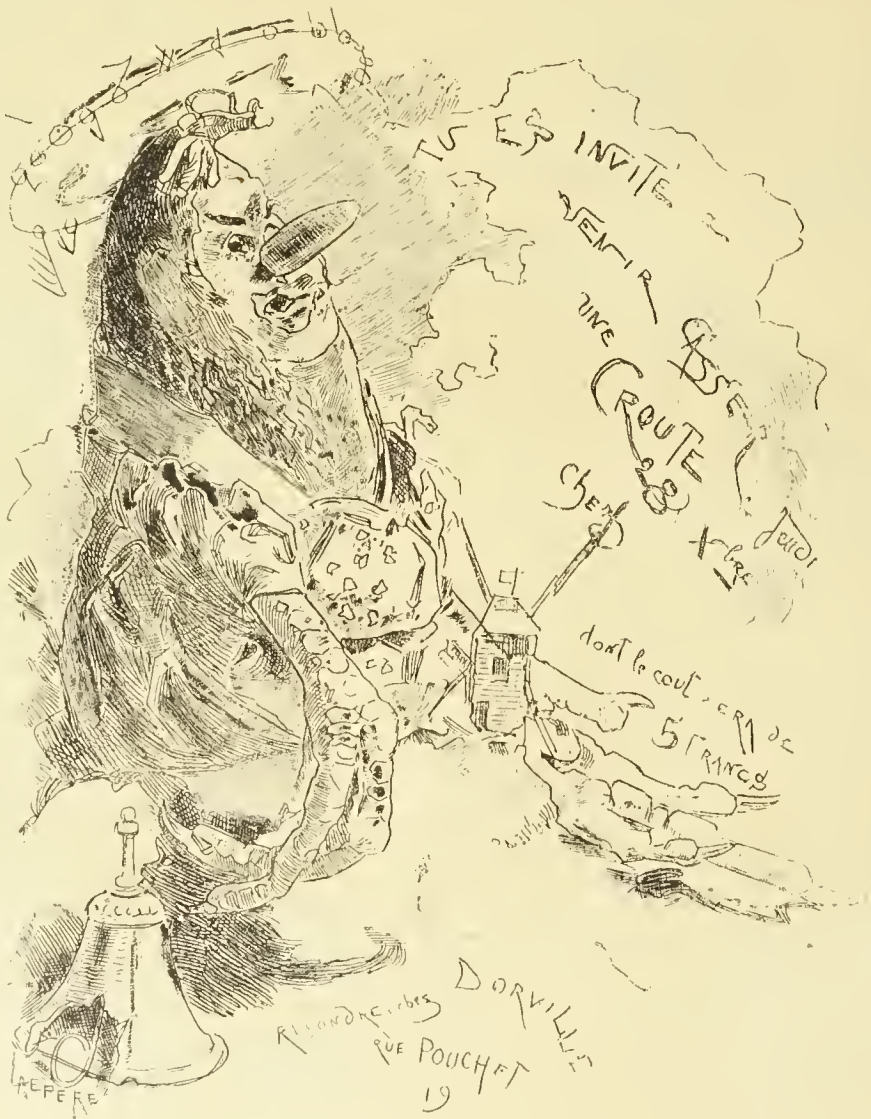 TU ES INVITE
VENIR
CASSE
UNE
CROUTE
chez
Jeudi
Xbre
dont le cout SERA DE
5 FRANCS
REPONDRE chez DORVILLE
RUE POUCHET
19
LAEPERE